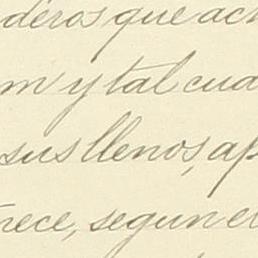 deros que ac
m y tal cua
sus llenos, ap
rece, segun el